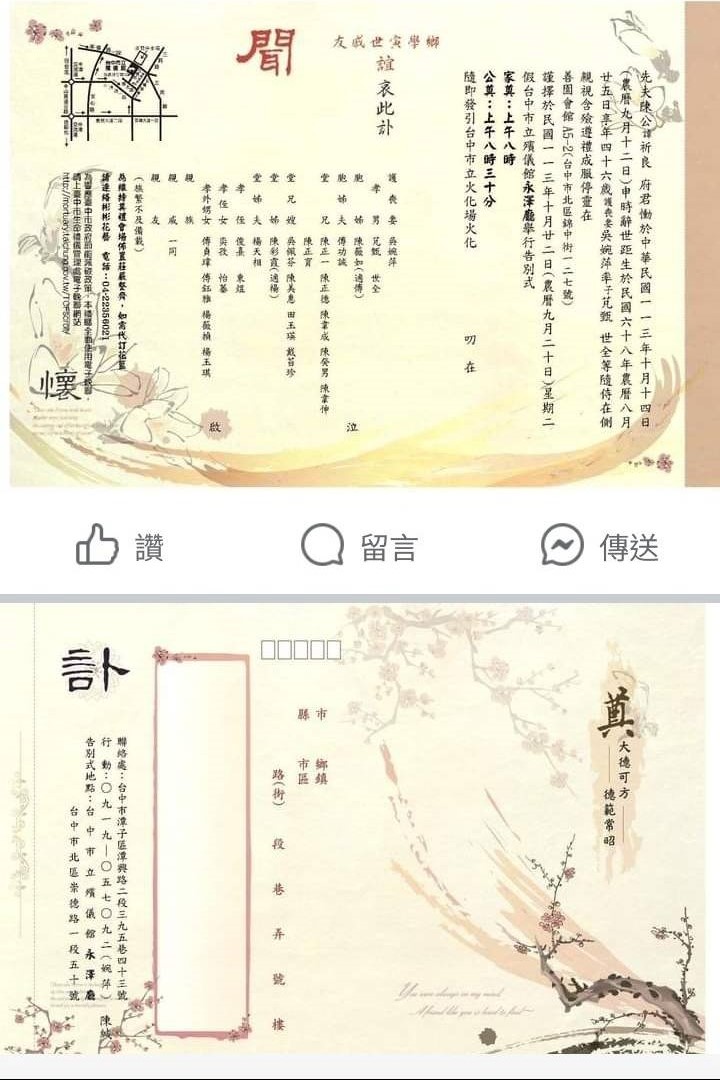 先夫陳公諱祈良 府君慟於中華民國一一三年十月十四日
(農曆九月十二日)申時辭世距生於民國六十八年農曆八月
廿五日享年四十六歲護喪妻吳婉萍率子芃甄 世全等隨侍在側
親視含殮遵禮成服停靈在
善園會館A5-2(台中市北區錦中街一二七號)
謹擇於民國一一三年十月廿二日(農曆九月二十日)星期二
假台中市立殯儀館永澤廳舉行告別式
家奠:上午八時
公奠:上午八時三十分
隨即發引台中市立火化場火化
叨在
鄉學寅世戚友
誼
哀此訃
聞
護喪妻 吳婉萍
孝男 芃甄 世全
胞姊 陳薇如(適傅)
胞姊夫 傅功誠
堂兄 陳正一 陳正德 陳韋成 陳癸男 陳韋伸
陳正育
堂兄嫂 吳佩芬 陳美惠 田玉瑛 戴苔珍
堂姊 陳彩霞(適楊)
堂姊夫 楊天相
孝侄 俊熹 東焜
孝侄女 奕孜 怡蓁
孝外甥女 傅貞瑋 傅鈺雅 楊薇楨 楊玉琪
親族
親戚 一同
親友
(族繁不及備載)
泣
啟
為維持奠禮會場佈置莊嚴整齊,如需代訂花籃
請連絡彬彬花藝 電話:04-22356021
為響應臺中市政府節能減碳政策,本禮廳全面使用電子輓聯,
請上臺中市生命禮儀管理處電子輓聯網站
懷
讚
留言
傳送
奠
大德可方
德範常昭
市 鄉鎮
縣 市區
路(街) 段 巷 弄 號 樓
訃
聯絡處:台中市潭子區潭興路二段三九五巷四十三號
行動:〇九一九—〇五七〇九二(婉萍) 陳緘
告別式地點:台中市立殯儀館永澤廳
台中市北區崇德路一段五十號
You were always in my mind.
A friend like you is hard to find